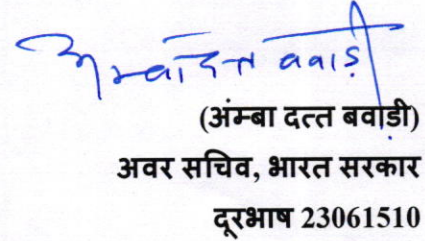 अम्बा दत्त बवाड़ी
(अंम्बा दत्त बवाड़ी)
अवर सचिव, भारत सरकार
दूरभाष 23061510